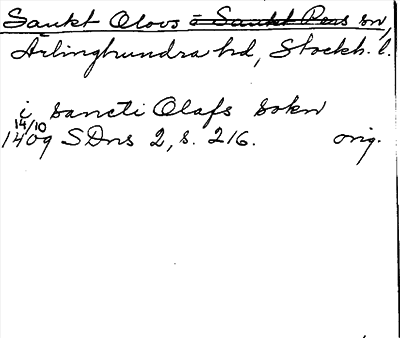 Sankt Olovs = Sankt Pers sn,
Ärlinghundra hd, Stockh. l.
i sancti Olafs sokn
14/10
1409 SDns 2, s. 216. orig.